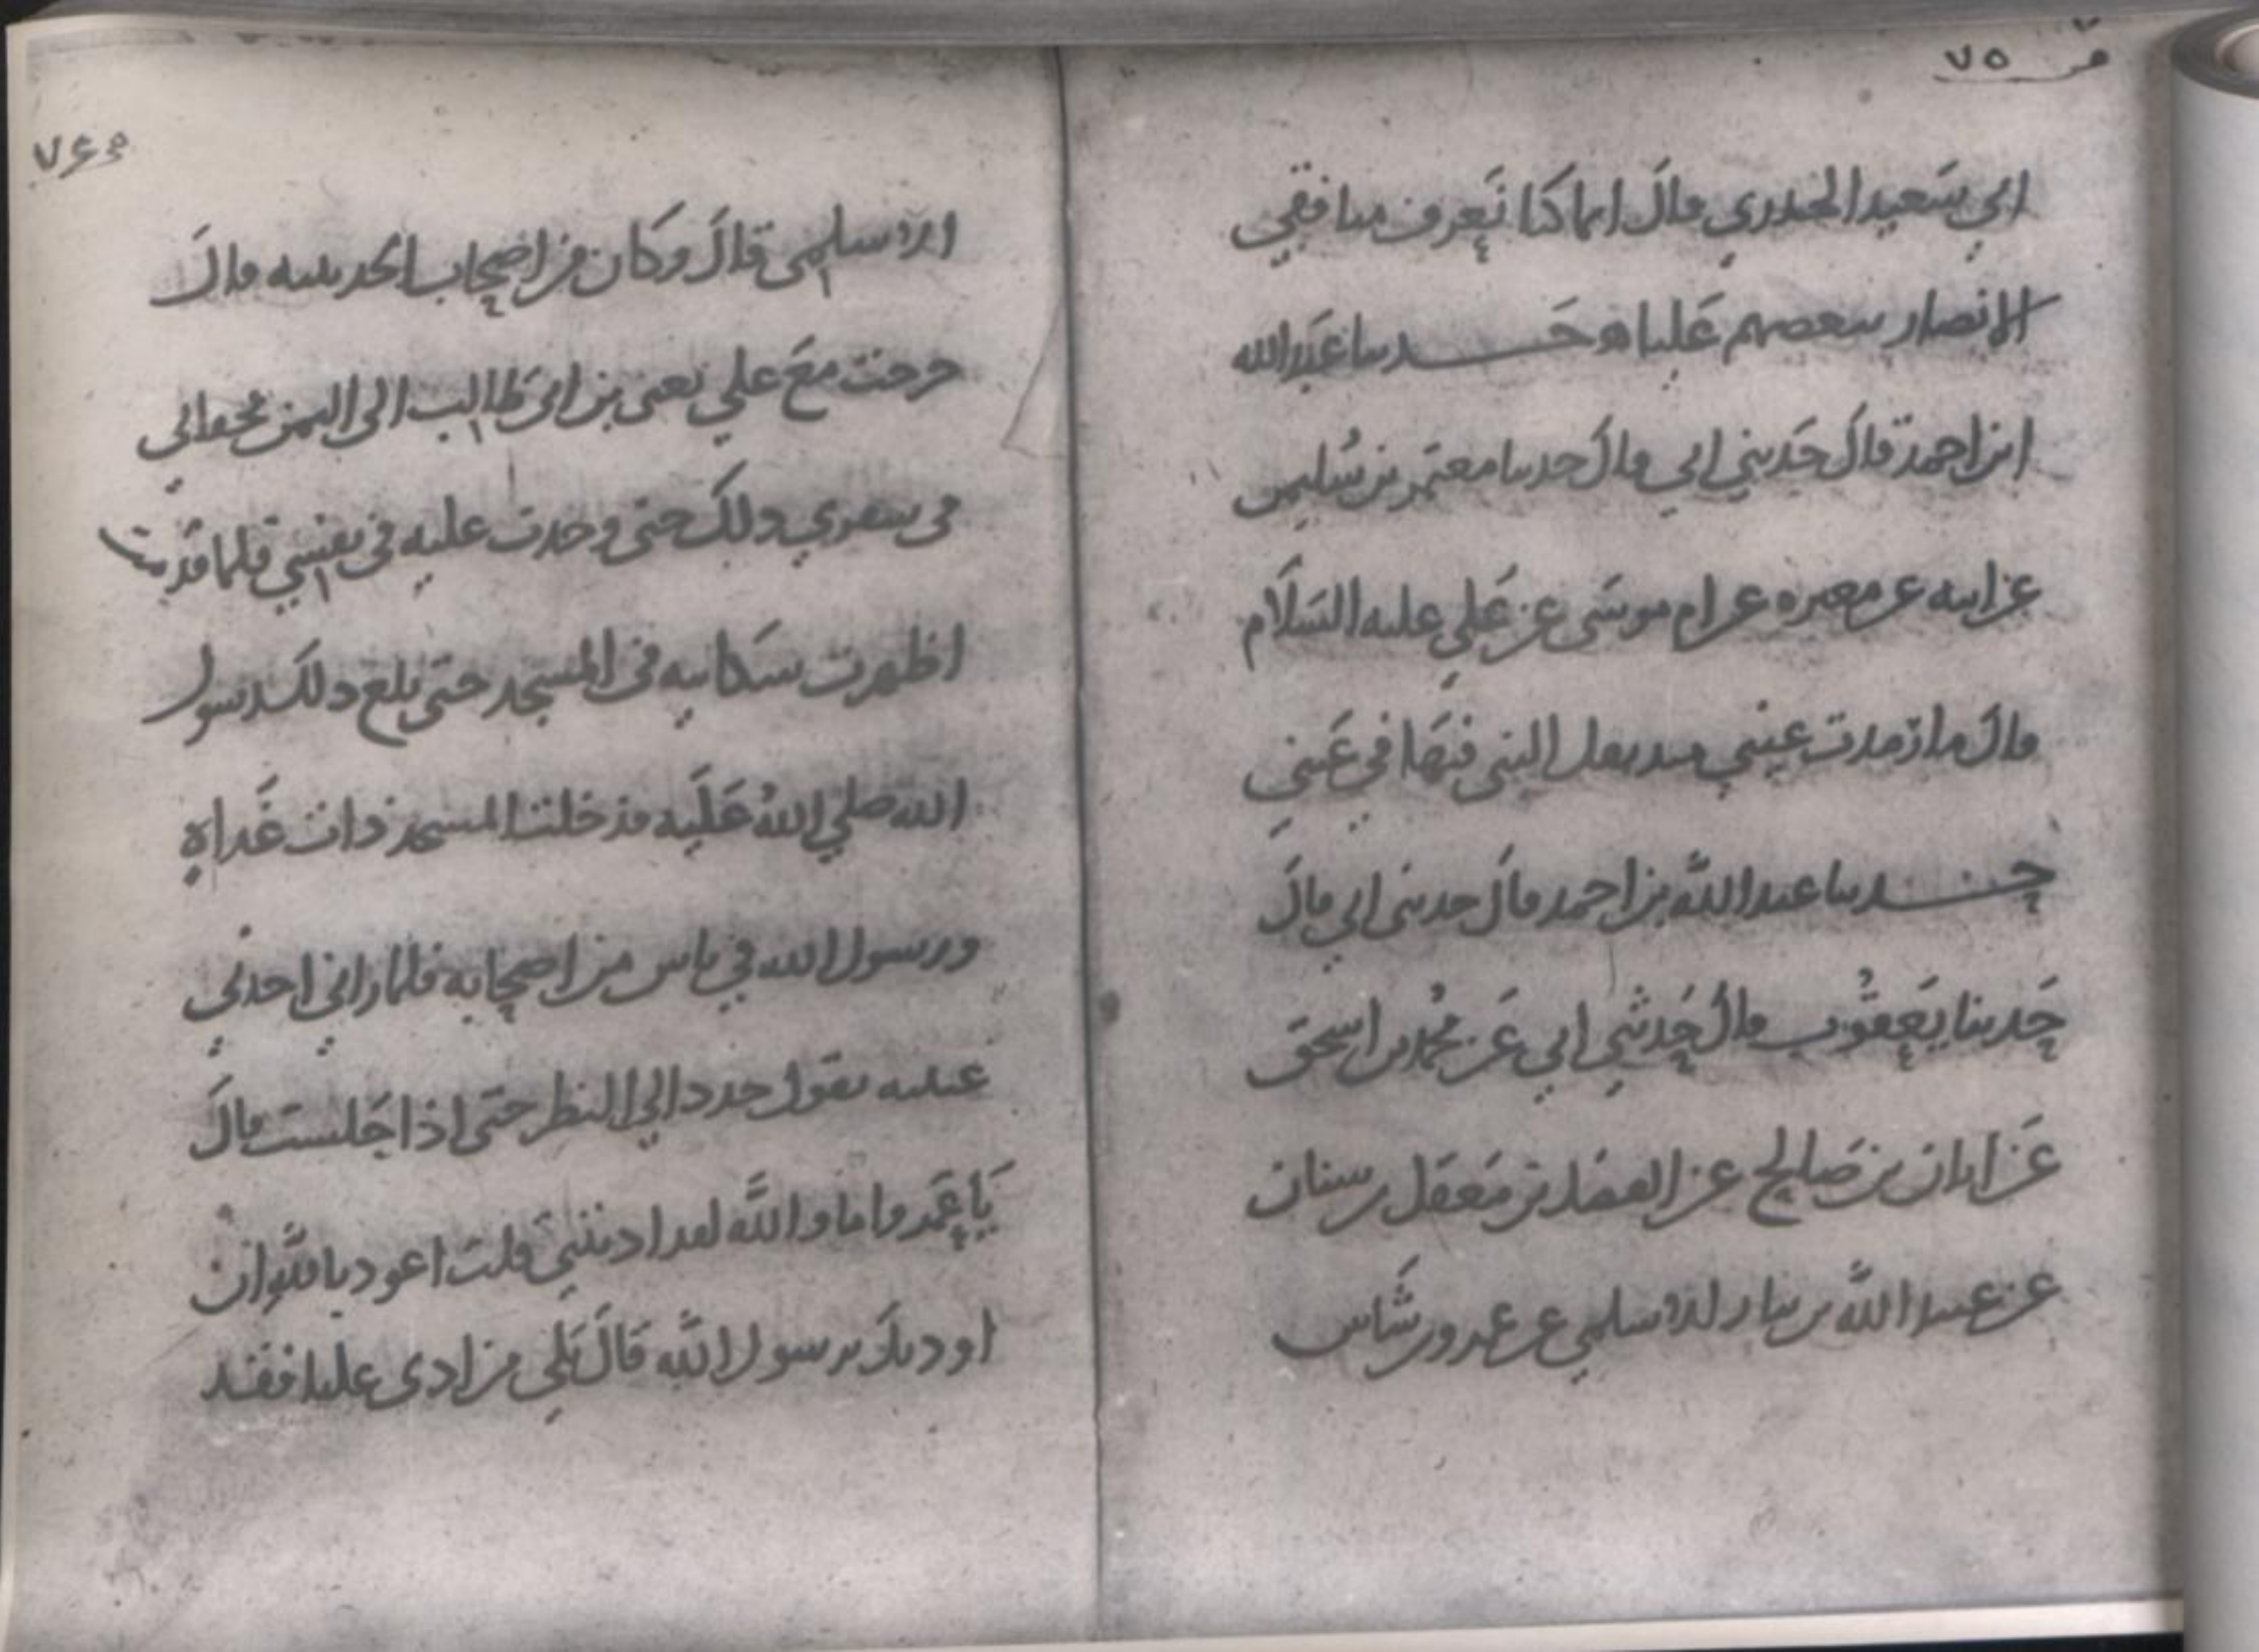 ص ٧٥
ابي سَعيد الخدري قالَ انما كنا نَعرف منافقي
الانصار ببعضهم عَليا ه حَـــدثنا عَبدالله
ابن احمد قالَ حَدثني ابي قالَ حدثنا معتمر بن سُليمن
عن ابيه عن مغيره عن ام موسَى عن عَلي عليه السَلَام
قالَ ما رَمدت عيني منذ تفل النبي في عَيني
حـــدثنا عبد اللَّه بن احمد قالَ حدثني ابي قالَ
حَدثنا يَعقُوب قالُ حَدثني ابي عَن محُمد بن اسحق
عَن ابان بن صَالح عن الفضل بن مَعقل بن سنان
عن عبد اللَّه بن نيار الاسلمي عن عمرو بن شَاس
ص ٧٦
الاسلمي قالَ وكَان من اصحاب الحديبيه قالَ
خرجت معَ علي يعني بن ابي طَالب الى اليمن فجفاني
في سفري ذلك حتى وجدت عليه في نفسي فلما قدمت
اظهرت شكَايته في المسجد حتى بلغ ذلكَ رسول
الله صلي اللهُ عَلَيه فدخلت المسجد ذات غَداةٍ
ورسول الله في ناس من اصحابه فلما راني احدني
عينيه يقول حدد الي النظر حتى اذا جَلست قالَ
يَا عَمرو اما واللَّه لقد اذيتني قلت اعوذ باللَّه ان
اوذيك يرسول اللَّه قالَ بَلي من اذى عليا فقد